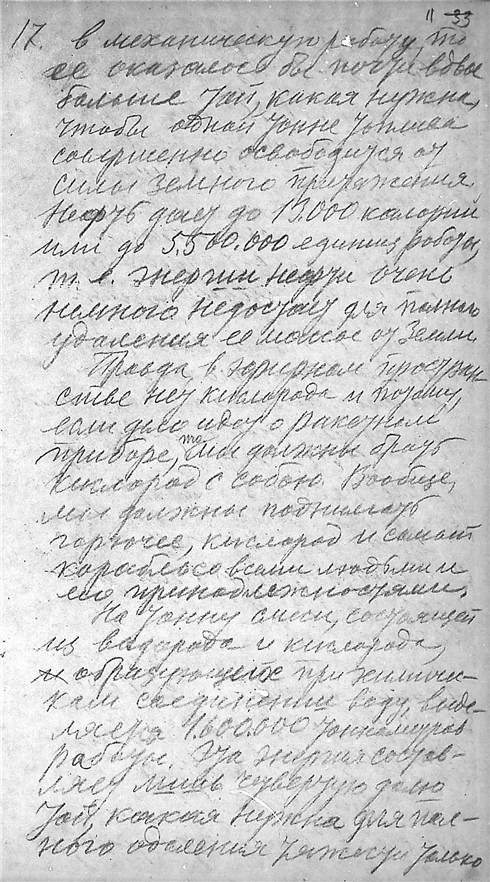 11 33
17. в механическую работу, то
ее оказалось бы почти вдвое
больше той, какая нужна,
чтобы одной тонне топлива
совершенно освободится от
силы земного притяжения.
Нефть дает до 13.000 калорий
или до 5.500.000 единиц работы,
т. е. энергии нефти очень
немного недостает для полного
удаления ее массы от Земли.
Правда, в эфирном простран-
стве нет кислорода и потому,
если дело идет о ракетном
приборе, то мы должны брать
кислород с собою. Вообще,
мы должны поднимать
горючее, кислород и самый
корабль со всеми людьми и
его принадлежностями.
На тонну смеси, состоящей
из водорода и кислорода,
и образующейся при химиче-
ком соединении воду, выде-
ляется 1.600.000 тоннометров
работы. Эта энергия состав-
ляет лишь четвертую долю
той, какая нужна для пол-
ного одоления тяжести только